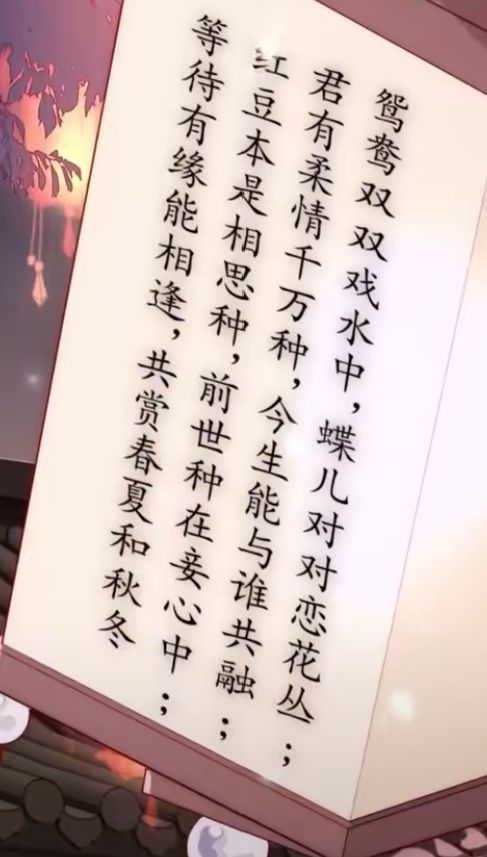 鸳鸯双双戏水中，蝶儿对对恋花丛；
君有柔情千万种，今生能与谁共融；
红豆本是相思种，前世种在妾心中；
等待有缘能相逢，共赏春夏和秋冬